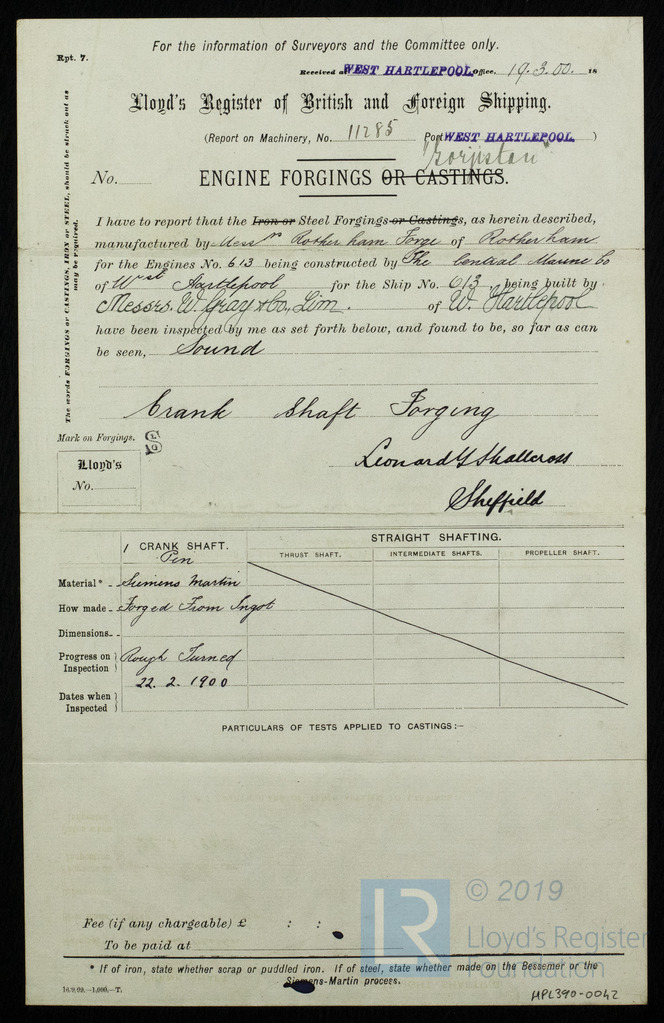 Rpt. 7.
For the information of Surveyors and the Committee only.
Received at WEST HARTLEPOOL Office, 19.3.00. 18
Lloyd's Register of British and Foreign Shipping.
(Report on Machinery, No. 11285 Port WEST HARTLEPOOL )
"Gorjistan"
No. ENGINE FORGINGS OR CASTINGS.
The words FORGINGS or CASTINGS, IRON or STEEL, should be struck out as
may be required.
I have to report that the Iron or Steel Forgings or Castings, as herein described,
manufactured by Messrs Rotherham Forge of Rotherham
for the Engines No. 613 being constructed by The Central Marine Co
of West Hartlepool for the Ship No. 613 being built by
Messrs. W. Gray & Co., Lim. of W. Hartlepool
have been inspected by me as set forth below, and found to be, so far as can
be seen, Sound
Crank Shaft Forging
Mark on Forgings.
Lloyd's
No.
Leonard G Shallcross
Sheffield
STRAIGHT SHAFTING.
1 CRANK SHAFT.
Pin
THRUST SHAFT. INTERMEDIATE SHAFTS. PROPELLER SHAFT.
Material* Siemens Martin
How made Forged From Ingot
Dimensions
Progress on
Inspection Rough Turned
22. 2. 1900
Dates when
Inspected
PARTICULARS OF TESTS APPLIED TO CASTINGS:—
Fee (if any chargeable) £ : :
To be paid at
* If of iron, state whether scrap or puddled iron. If of steel, state whether made on the Bessemer or the
Siemens-Martin process.
16.9.99.—1,000.—T.
HPL390-0042
LR
© 2019
Lloyd's Register
Foundation